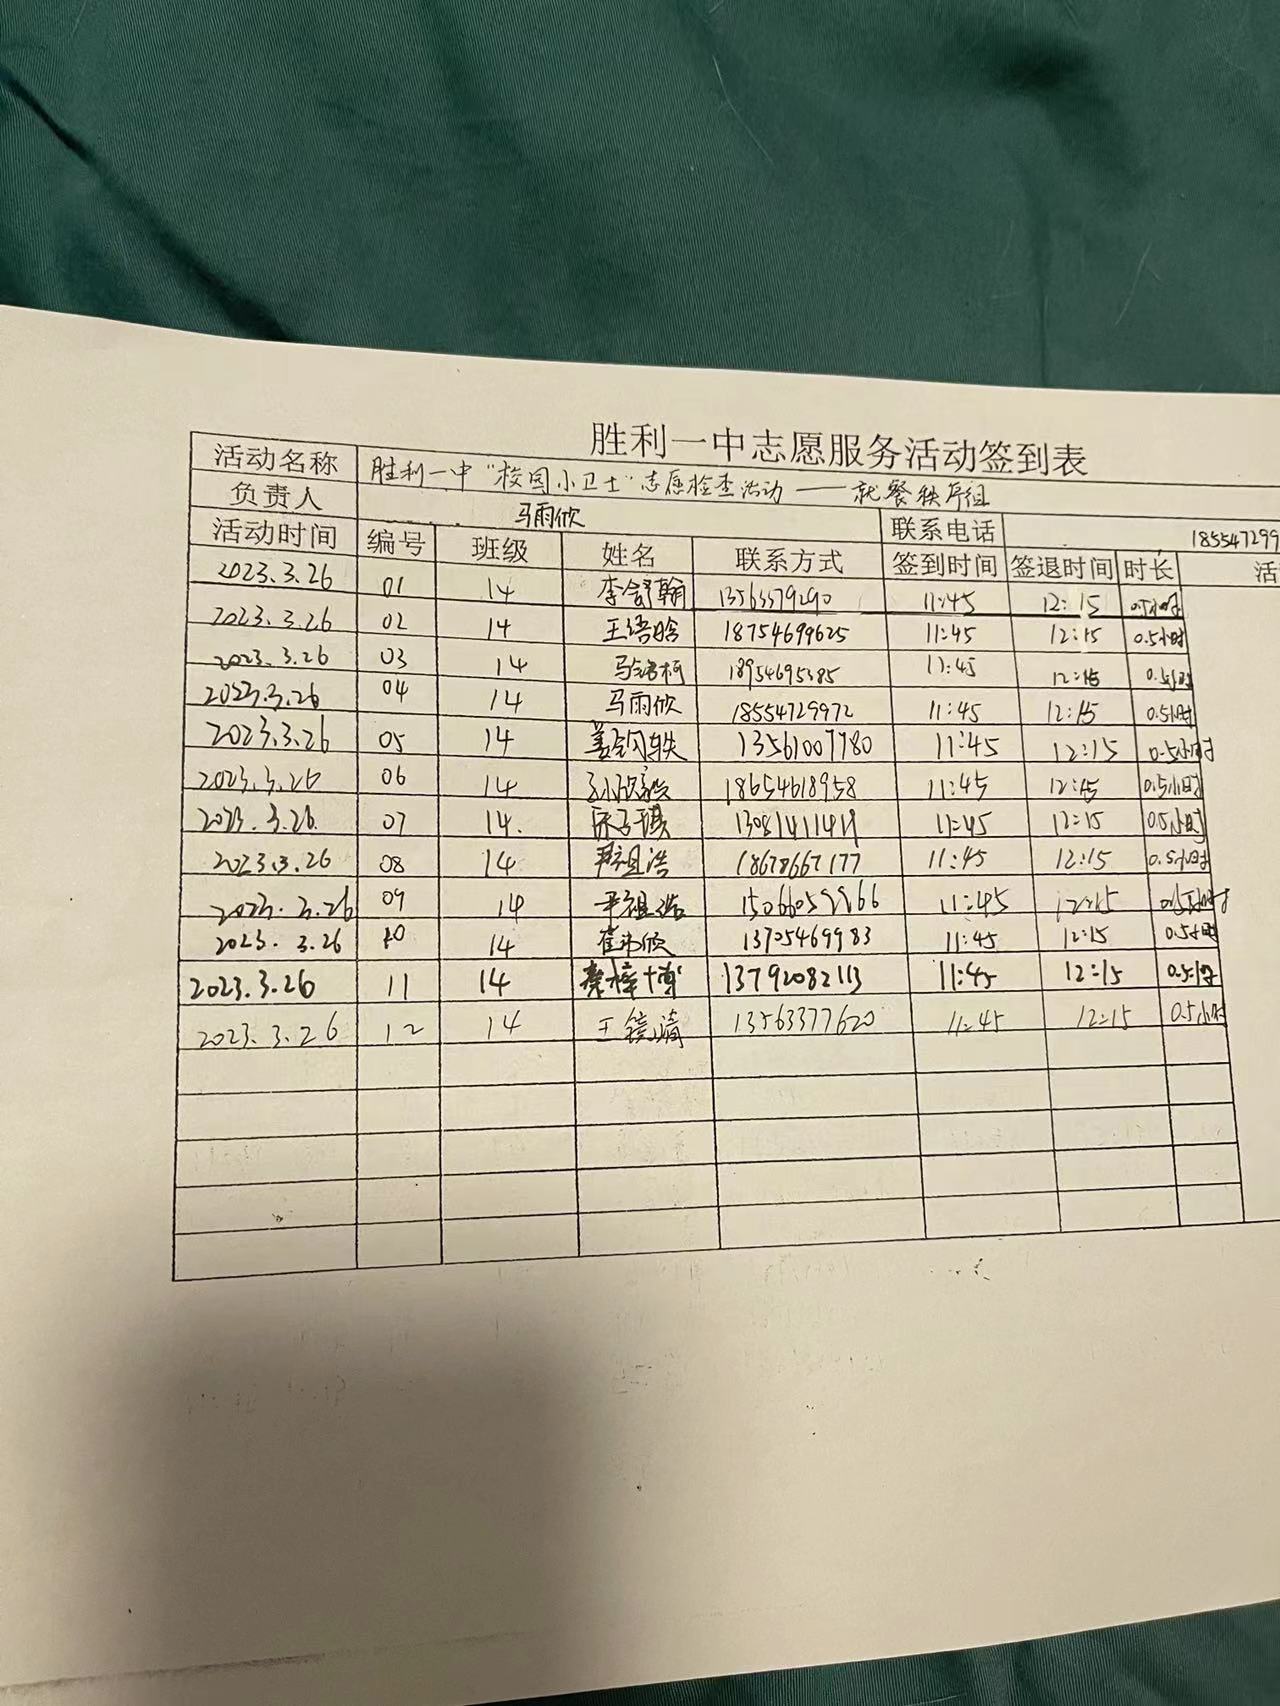 胜利一中志愿服务活动签到表
活动名称 胜利一中“校园小卫士”志愿检查活动——就餐秩序组
负责人 马雨欣 联系电话 185547299
活动时间 编号 班级 姓名 联系方式 签到时间 签退时间 时长 活
2023.3.26 01 14 李舒翰 13563379290 11:45 12:15 0.5小时
2023.3.26 02 14 王语晗 18754699625 11:45 12:15 0.5小时
2023.3.26 03 14 18954695385 11:45 12:15 0.5小时
2023.3.26 04 14 马雨欣 18554729972 11:45 12:15 0.5小时
2023.3.26 05 14 13561007780 11:45 12:15 0.5小时
2023.3.26 06 14 18654618958 11:45 12:15 0.5小时
2023.3.26 07 14. 宋子琪 13081411419 11:45 12:15 0.5小时
2023.3.26 08 14 18678667177 11:45 12:15 0.5小时
2023.3.26 09 14 11:45 12:15 0.5小时
2023.3.26 10 14 13705469983 11:45 12:15 0.5小时
2023.3.26 11 14 13792082113 11:45 12:15 0.5小时
2023.3.26 12 14 王镜漪 13563377620 11:45 12:15 0.5小时